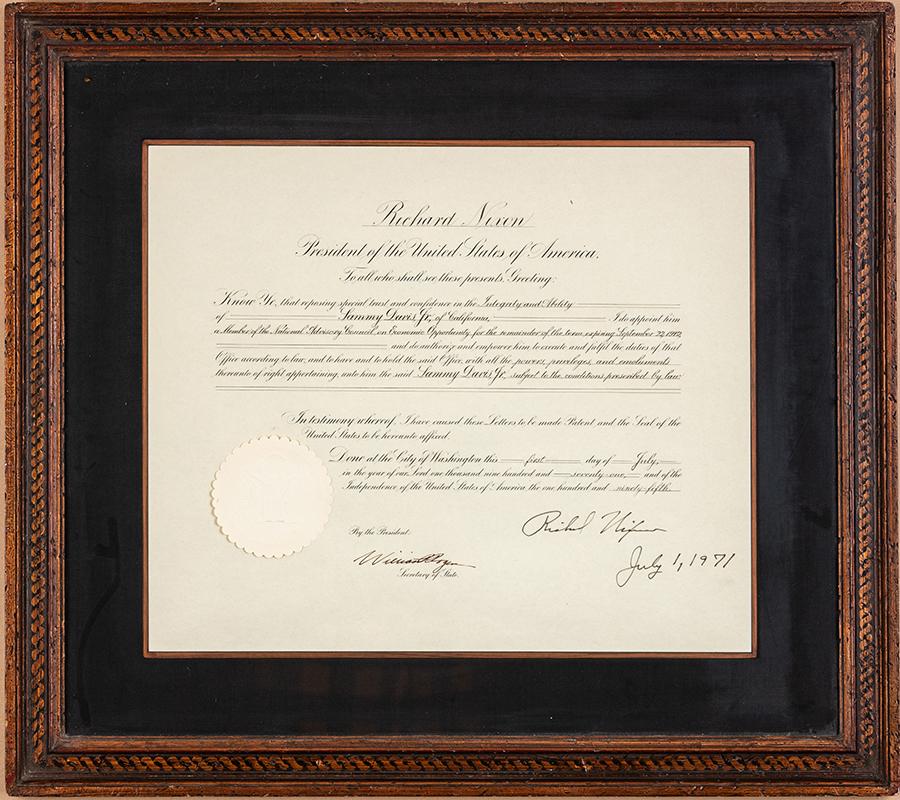 Richard Nixon
President of the United States of America.
To all who shall see these presents, Greeting:
Know Ye, that reposing special trust and confidence in the Integrity and Ability
of Sammy Davis, Jr., of California, I do appoint him
a Member of the National Advisory Council on Economic Opportunity for the remainder of the term expiring September 22, 1972,
and do authorize and empower him to execute and fulfil the duties of that
Office according to law, and to have and to hold the said Office, with all the powers, privileges, and emoluments
thereunto of right appertaining, unto him the said Sammy Davis, Jr., subject to the conditions prescribed by law.
In testimony whereof, I have caused these Letters to be made Patent and the Seal of the
United States to be hereunto affixed.
Done at the City of Washington this first day of July,
in the year of our Lord one thousand nine hundred and seventy-one, and of the
Independence of the United States of America the one hundred and ninety-fifth.
By the President:
Richard Nixon
July 1, 1971
William P. Rogers
Secretary of State.